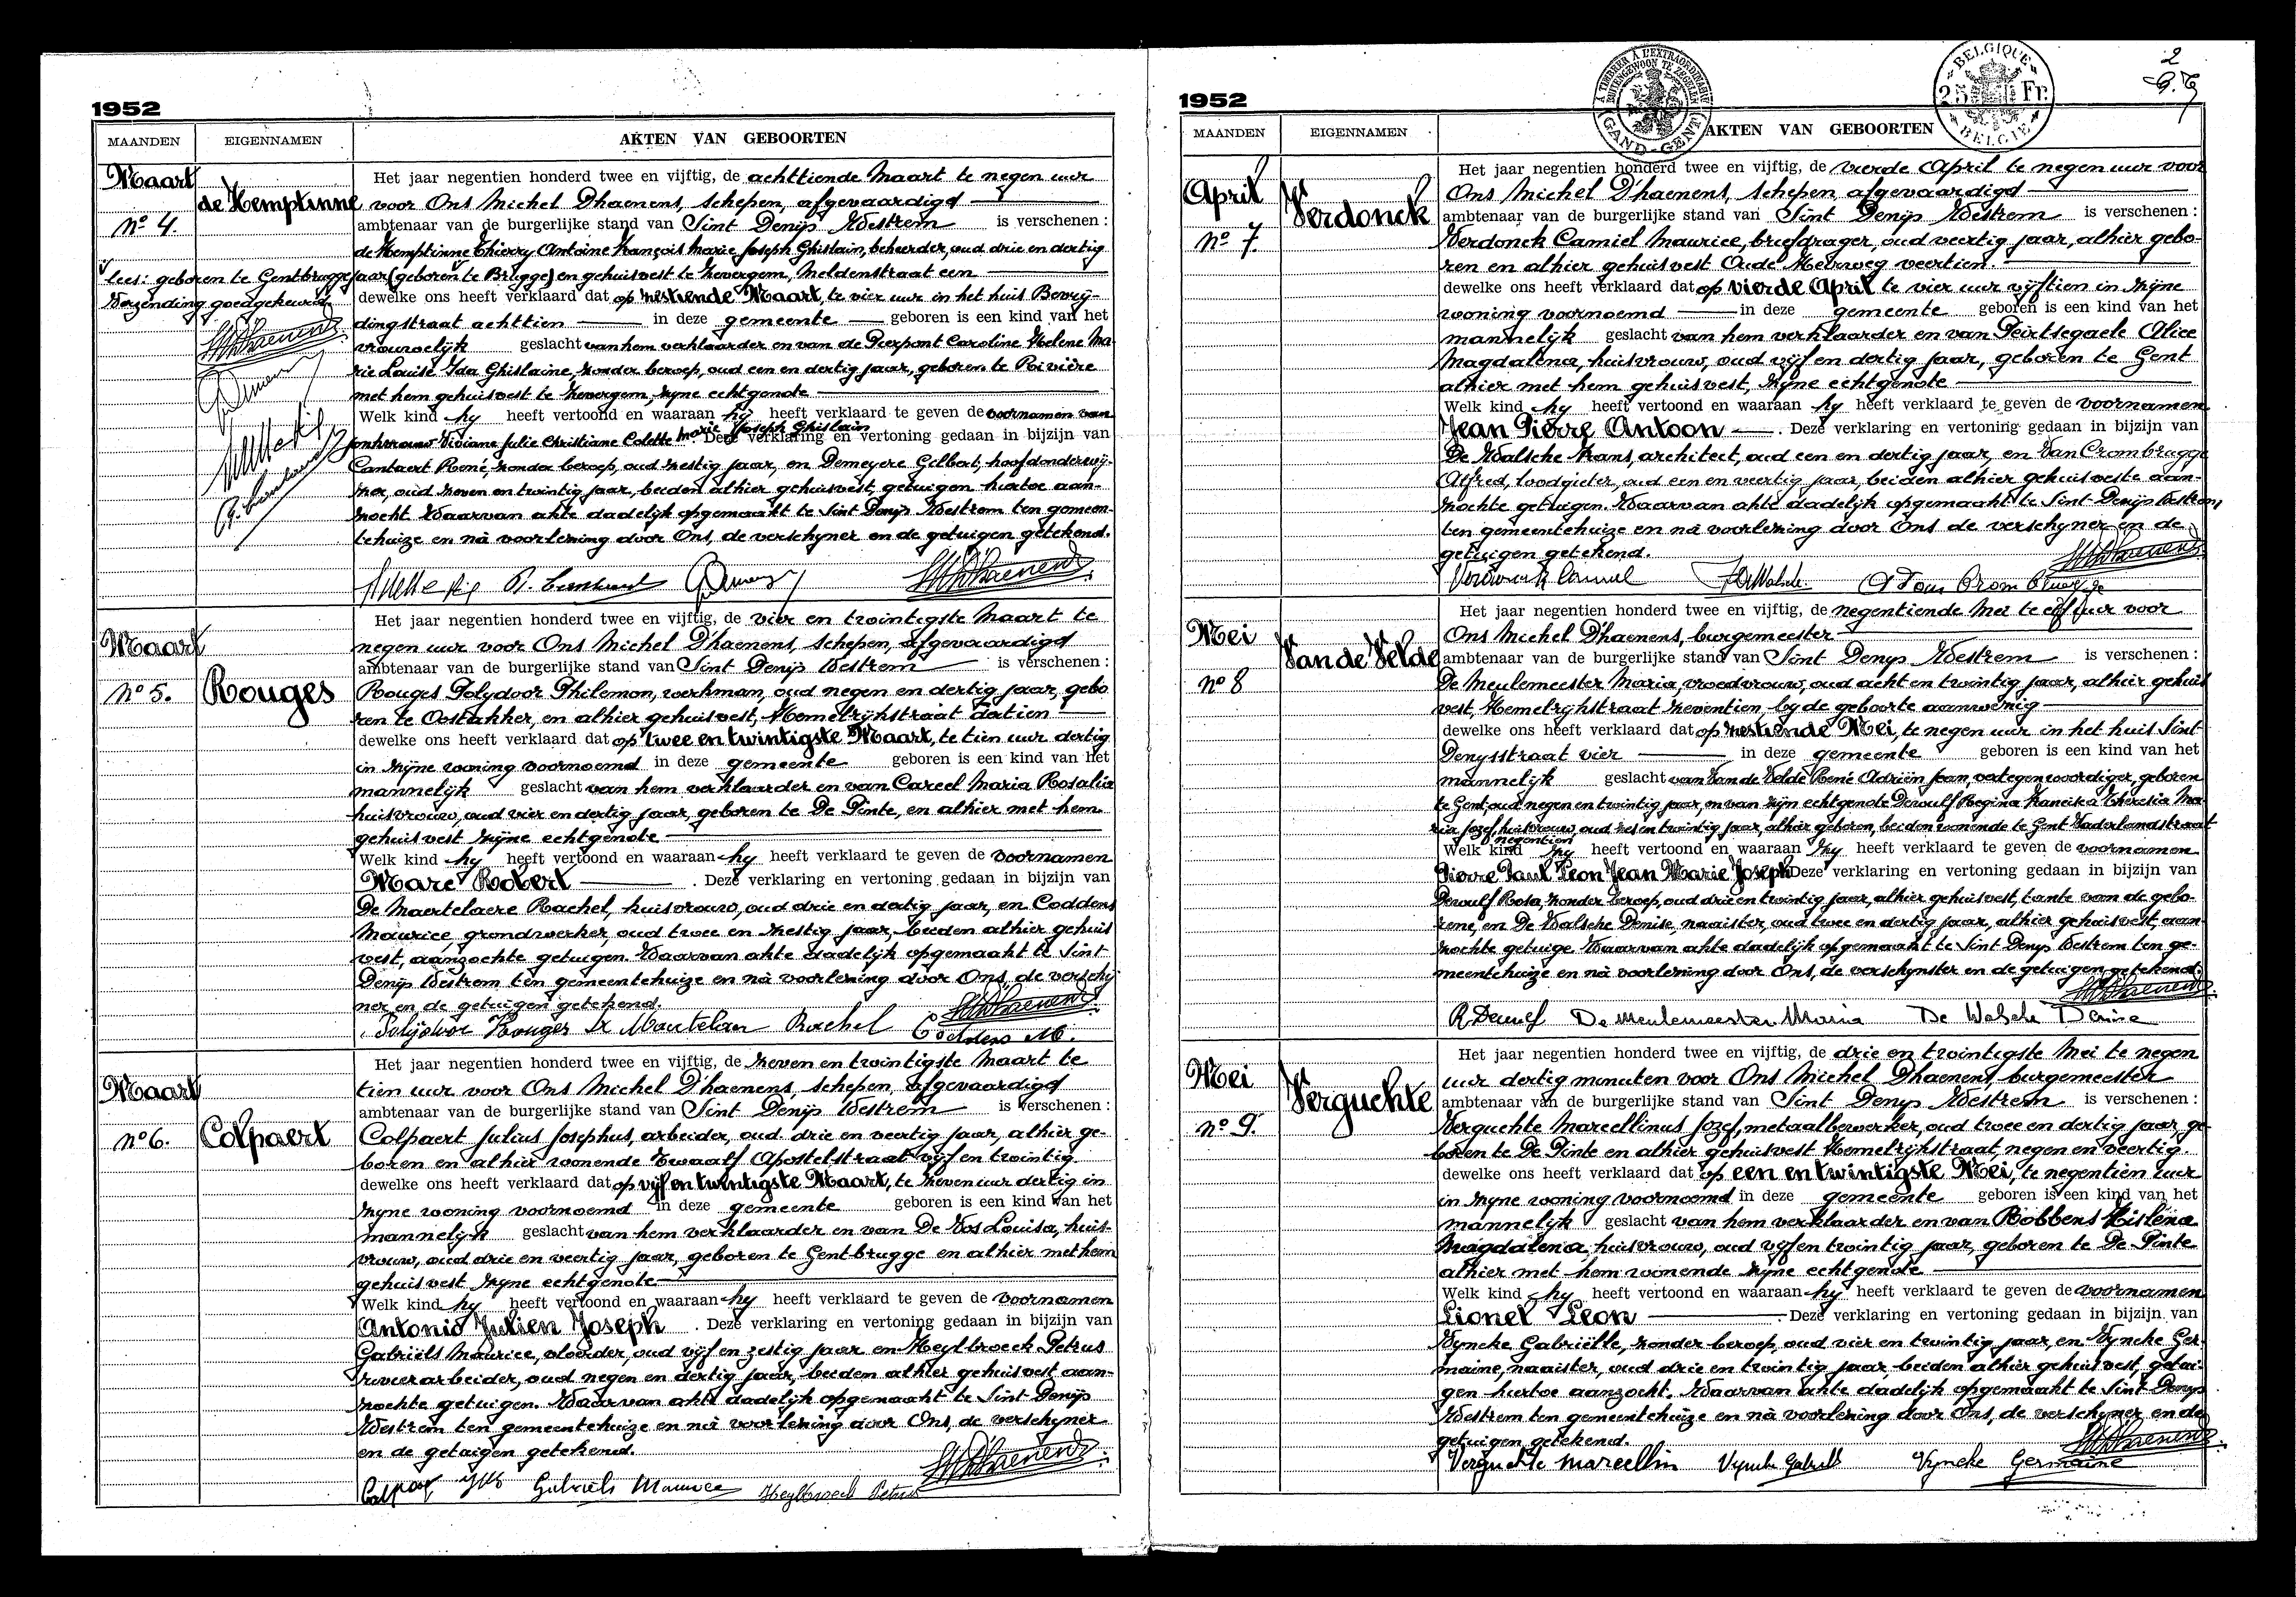 1952
MAANDEN EIGENNAMEN AKTEN VAN GEBOORTEN
Maart
No 4.
de Hemptinne
lees: geboren te Gentbrugge
Wezending goedgekeurd.
Het jaar negentien honderd twee en vijftig, de achttiende Maart te negen uur
voor Ons Michel D'haenens, schepen, afgevaardigd
ambtenaar van de burgerlijke stand van Sint Denijs Westrem is verschenen :
de Hemptinne Thierry Antoine François Marie Joseph Ghislain, beheerder, oud drie en dertig
jaar (geboren te Brugge) en gehuisvest te Zevergem, Meldenstraat een
dewelke ons heeft verklaard dat op zestiende Maart, te vier uur in het huis Bevrij-
dingstraat achttien in deze gemeente geboren is een kind van het
vrouwelijk geslacht van hem verklaarder en van de Pierpont Caroline Helene Ma
rie Louise Ida Ghislaine, zonder beroep, oud een en dertig jaar, geboren te Rivière
met hem gehuisvest te Zevergem, zijne echtgenote
Welk kind hij heeft vertoond en waaraan hij heeft verklaard te geven de voornamen van
jonkvrouw Viviane Julie Christiane Colette Marie Joseph Ghislain Deze verklaring en vertoning gedaan in bijzijn van
Cantaert René, zonder beroep, oud zestig jaar, en Demeyere Gilbert, hoofdonderwij-
zer, oud zeven en twintig jaar, beiden alhier gehuisvest, getuigen hiertoe aan-
zocht. Waarvan akte dadelijk opgemaakt te Sint Denijs Westrem ten gemeen-
tehuize en nà voorlezing door Ons, de verschijner en de getuigen getekend.
Maart
No 5.
Rouges
Het jaar negentien honderd twee en vijftig, de vier en twintigste Maart te
negen uur voor Ons Michel D'haenens, schepen, afgevaardigd
ambtenaar van de burgerlijke stand van Sint Denijs Westrem is verschenen :
Rouges Polydoor Philemon, werkman, oud negen en dertig jaar, gebo
ren te Oostakker, en alhier gehuisvest, Hemelrijkstraat dertien
dewelke ons heeft verklaard dat op twee en twintigste Maart, te tien uur dertig
in zijne woning voornoemd in deze gemeente geboren is een kind van het
mannelijk geslacht van hem verklaarder en van Careel Maria Rosalia
huisvrouw, oud vier en dertig jaar, geboren te De Pinte, en alhier met hem
gehuisvest zijne echtgenote
Welk kind hij heeft vertoond en waaraan hij heeft verklaard te geven de voornamen
Marc Robert . Deze verklaring en vertoning gedaan in bijzijn van
De Maertelaere Rachel, huisvrouw, oud drie en dertig jaar, en Coddens
Maurice grondwerker, oud twee en zestig jaar, beiden alhier gehuis
vest, aanzochte getuigen. Waarvan akte dadelijk opgemaakt te Sint
Denijs Westrem ten gemeentehuize en nà voorlezing door Ons, de verschij
ner en de getuigen getekend.
Polijdoor Rouges De Maertelaere Rachel Coddens M.
Maart
No 6.
Colpaert
Het jaar negentien honderd twee en vijftig, de zeven en twintigste Maart te
tien uur voor Ons Michel D'haenens, schepen, afgevaardigd
ambtenaar van de burgerlijke stand van Sint Denijs Westrem is verschenen :
Colpaert Julius Josephus, arbeider, oud drie en veertig jaar, alhier ge-
boren en alhier wonende Twaalf Apostelstraat vijf en twintig
dewelke ons heeft verklaard dat op vijf en twintigste Maart, te zeven uur dertig in
zijne woning voornoemd in deze gemeente geboren is een kind van het
mannelijk geslacht van hem verklaarder en van De Vos Louisa, huis-
vrouw, oud drie en veertig jaar, geboren te Gentbrugge en alhier met hem
gehuisvest zijne echtgenote
Welk kind hij heeft vertoond en waaraan hij heeft verklaard te geven de voornamen
Antonio Julien Joseph . Deze verklaring en vertoning gedaan in bijzijn van
Gabriëls Maurice, vloerder, oud vijf en zestig jaar en Heylbroeck Petrus
rivierarbeider, oud negen en dertig jaar, beiden alhier gehuisvest aan-
zochte getuigen. Waarvan akte dadelijk opgemaakt te Sint Denijs
Westrem ten gemeentehuize en nà voorlezing door Ons, de verschijner
en de getuigen getekend.
Gabriels Maurice Heylbroeck Petrus
2
À TIMBRER À L'EXTRAORDINAIRE
BUITENGEWOON TE ZEGELEN
GAND-GENT
BELGIQUE
25 Fr.
BELGIE
1952
MAANDEN EIGENNAMEN AKTEN VAN GEBOORTEN
April
No 7.
Verdonck
Het jaar negentien honderd twee en vijftig, de vierde April te negen uur voor
Ons Michel D'haenens, schepen, afgevaardigd
ambtenaar van de burgerlijke stand van Sint Denijs Westrem is verschenen :
Verdonck Camiel Maurice, briefdrager, oud veertig jaar, alhier gebo-
ren en alhier gehuisvest Oude Meirweg veertien.
dewelke ons heeft verklaard dat op vierde April te vier uur vijftien in zijne
woning voornoemd in deze gemeente geboren is een kind van het
mannelijk geslacht van hem verklaarder en van Peirtsegaele Alice
Magdalena, huisvrouw, oud vijf en dertig jaar, geboren te Gent
alhier met hem gehuisvest, zijne echtgenote
Welk kind hij heeft vertoond en waaraan hij heeft verklaard te geven de voornamen
Jean Pierre Antoon . Deze verklaring en vertoning gedaan in bijzijn van
De Walsche Frans, architect, oud een en dertig jaar, en Van Crombrugge
Alfred, loodgieter, oud een en veertig jaar, beiden alhier gehuisveste aan-
zochte getuigen. Waarvan akte dadelijk opgemaakt te Sint-Denijs Westrem,
ten gemeentehuize en nà voorlezing door Ons de verschijner en de
getuigen getekend.
Verdonck Camiel
Mei
No 8
Van de Velde
Het jaar negentien honderd twee en vijftig, de negentiende Mei te elf uur voor
Ons Michel D'haenens, burgemeester
ambtenaar van de burgerlijke stand van Sint Denys Westrem is verschenen :
De Meulemeester Maria, vroedvrouw, oud acht en twintig jaar, alhier gehuis
vest, Hemelrijkstraat zeventien, bij de geboorte aanwezig
dewelke ons heeft verklaard dat op zestiende Mei, te negen uur in het huis Sint-
Denysstraat vier in deze gemeente geboren is een kind van het
mannelijk geslacht van Van de Velde René Adriën Jean, vertegenwoordiger, geboren
te Gent, oud negen en twintig jaar, en van zijn echtgenote Dewulf Regina Francisca Theresia Ma
ria Jozef, huisvrouw, oud zes en twintig jaar, alhier geboren, beiden wonende te Gent Vaderlandstraat
negentien
Welk kind zij heeft vertoond en waaraan zij heeft verklaard te geven de voornamen
Pierre Paul Leon Jean Marie Joseph Deze verklaring en vertoning gedaan in bijzijn van
Dewulf Rosa, zonder beroep, oud drie en twintig jaar, alhier gehuisvest, tante van de gebo-
rene, en De Walsche Denise, naaister, oud twee en dertig jaar, alhier gehuisvest, aan-
zochte getuige. Waarvan akte dadelijk opgemaakt te Sint Denys Westrem ten ge-
meentehuize en nà voorlezing door Ons, de verschijnster en de getuigen getekend.
R Dewulf De Meulemeester Maria De Walsche Denise
Mei
No 9.
Verguchte
Het jaar negentien honderd twee en vijftig, de drie en twintigste Mei te negen
uur dertig minuten voor Ons Michel D'haenens, burgemeester
ambtenaar van de burgerlijke stand van Sint Denys Westrem is verschenen :
Verguchte Marcellinus Jozef, metaalbewerker, oud twee en dertig jaar ge-
boren te De Pinte en alhier gehuisvest Hemelrijkstraat, negen en veertig.
dewelke ons heeft verklaard dat op een en twintigste Mei, te negentien uur
in zijne woning voornoemd in deze gemeente geboren is een kind van het
mannelijk geslacht van hem verklaarder en van Robbens Gislena
Magdalena, huisvrouw, oud vijf en twintig jaar, geboren te De Pinte
alhier met hem wonende zijne echtgenote
Welk kind hij heeft vertoond en waaraan hij heeft verklaard te geven de voornamen
Lionel Leon . Deze verklaring en vertoning gedaan in bijzijn van
Vyncke Gabriëlle, zonder beroep, oud vier en twintig jaar, en Vyncke Ger-
maine, naaister, oud drie en twintig jaar, beiden alhier gehuisvest, getui-
gen hiertoe aanzocht. Waarvan akte dadelijk opgemaakt te Sint-Denys
Westrem ten gemeentehuize en nà voorlezing door Ons, de verschijner en de
getuigen getekend.
Verguchte Marcellin Vyncke Gabrielle Vyncke Germaine